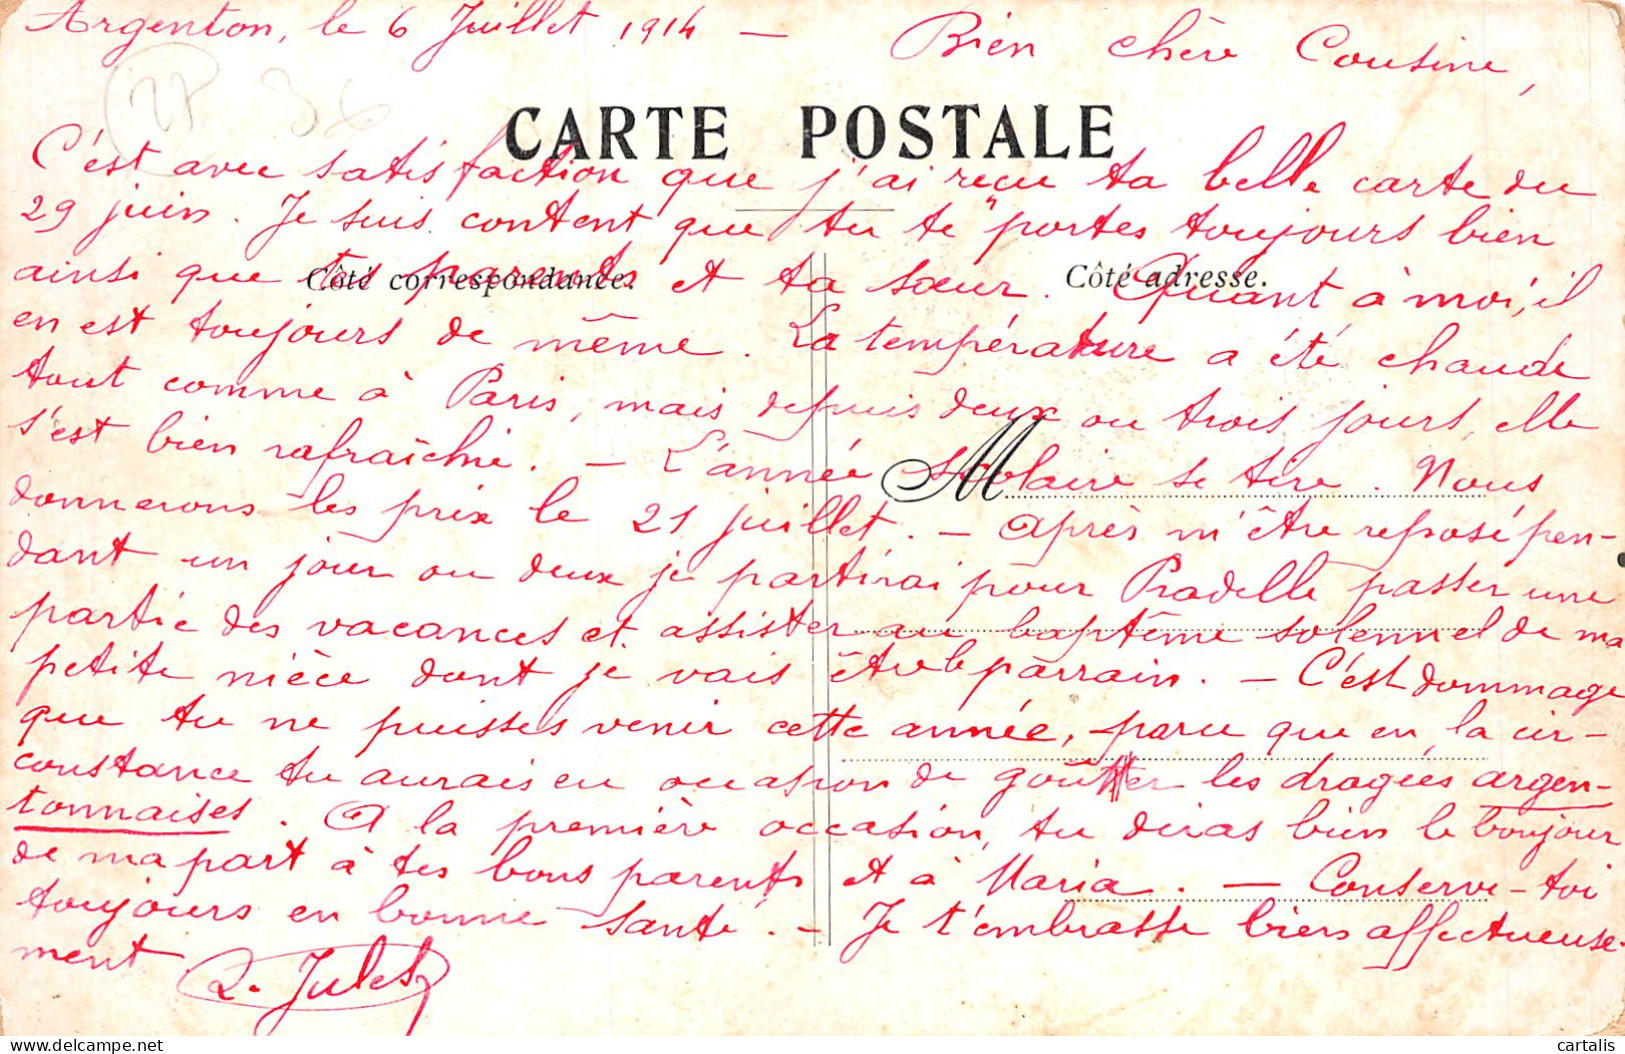 Argenton, le 6 Juillet 1914 — Bien chère Cousine,
36
CARTE POSTALE
C'est avec satisfaction que j'ai reçu ta belle carte du
29 juin. Je suis content que tu te portes toujours bien
Côté correspondance.
Côté adresse.
ainsi que tes parents et ta sœur. Quant à moi, il
en est toujours de même. La température a été chaude
tout comme à Paris, mais depuis deux ou trois jours, elle
s'est bien rafraîchie. — L'année scolaire se tire. Nous
M
donnerons les prix le 21 juillet. — Après m'être reposé pen-
dant un jour ou deux je partirai pour Pradelle passer une
partie des vacances et assister au baptême solennel de ma
petite nièce dont je vais être le parrain. — C'est dommage
que tu ne puisses venir cette année, parce que en la cir-
constance tu aurais eu occasion de goûter les dragées argen-
tonnaises. A la première occasion, tu diras bien le bonjour
de ma part à tes bons parents et à Maria. — Conserve-toi
toujours en bonne santé. — Je t'embrasse bien affectueuse-
ment
Jules
delcampe.net
cartalis